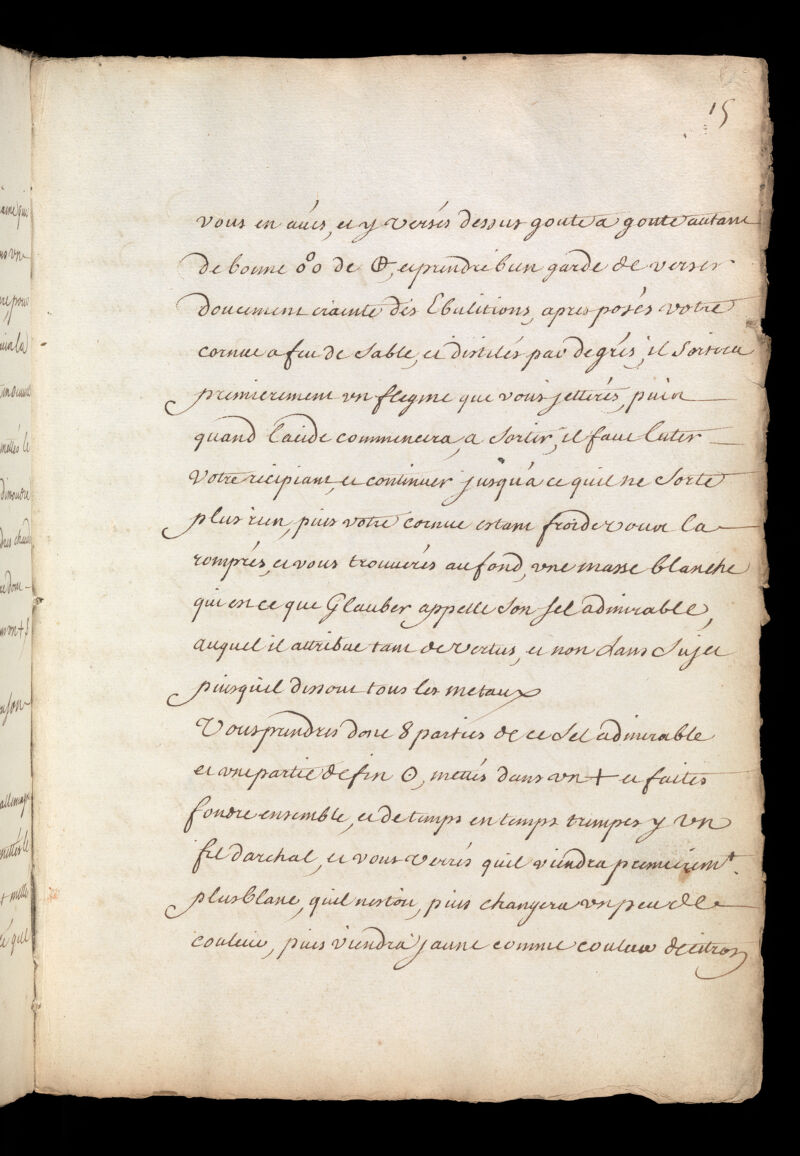 15
vous en avés, et y versés dessus goute a goute autant
de bonne o°o de ⊕, et prendré bien garde de verser
doucement crainte des Ebulitions, apres posés votre
cornue a feu de sable, et distilés par degrés, il sortira
premierement vn flegme que vous jetterés, puis
quand lacide commencera, a sortir, il faut luter
votre recipiant, et continuer jusqu'a ce quil ne sorte
plus rien, puis votre cornue estant froide vous la
romprés, et vous trouverés au fond, vne masse blanche
qui est ce que Glauber appelle son sel admirable,
auquel il attribue tant de vertus, et non sans sujet
puisquil dissout tous les metaux
Vous prendrés donc 8 parties de ce sel admirable
et vne partie de fin ☉, mettés dans vn + et faites
fondre ensemble, et de temps en temps trempes y vn
fil darchal, et vous verrés quil viendra premierem.t
plus blanc, quil nestoit, puis changera vn peu de
couleur, puis viendra jaune comme couleur de citron
aune qui
vn
pour
la
mettés le
dissoudre
donc
vn +
son
allemag
mettés le
+ mettés
qu'il